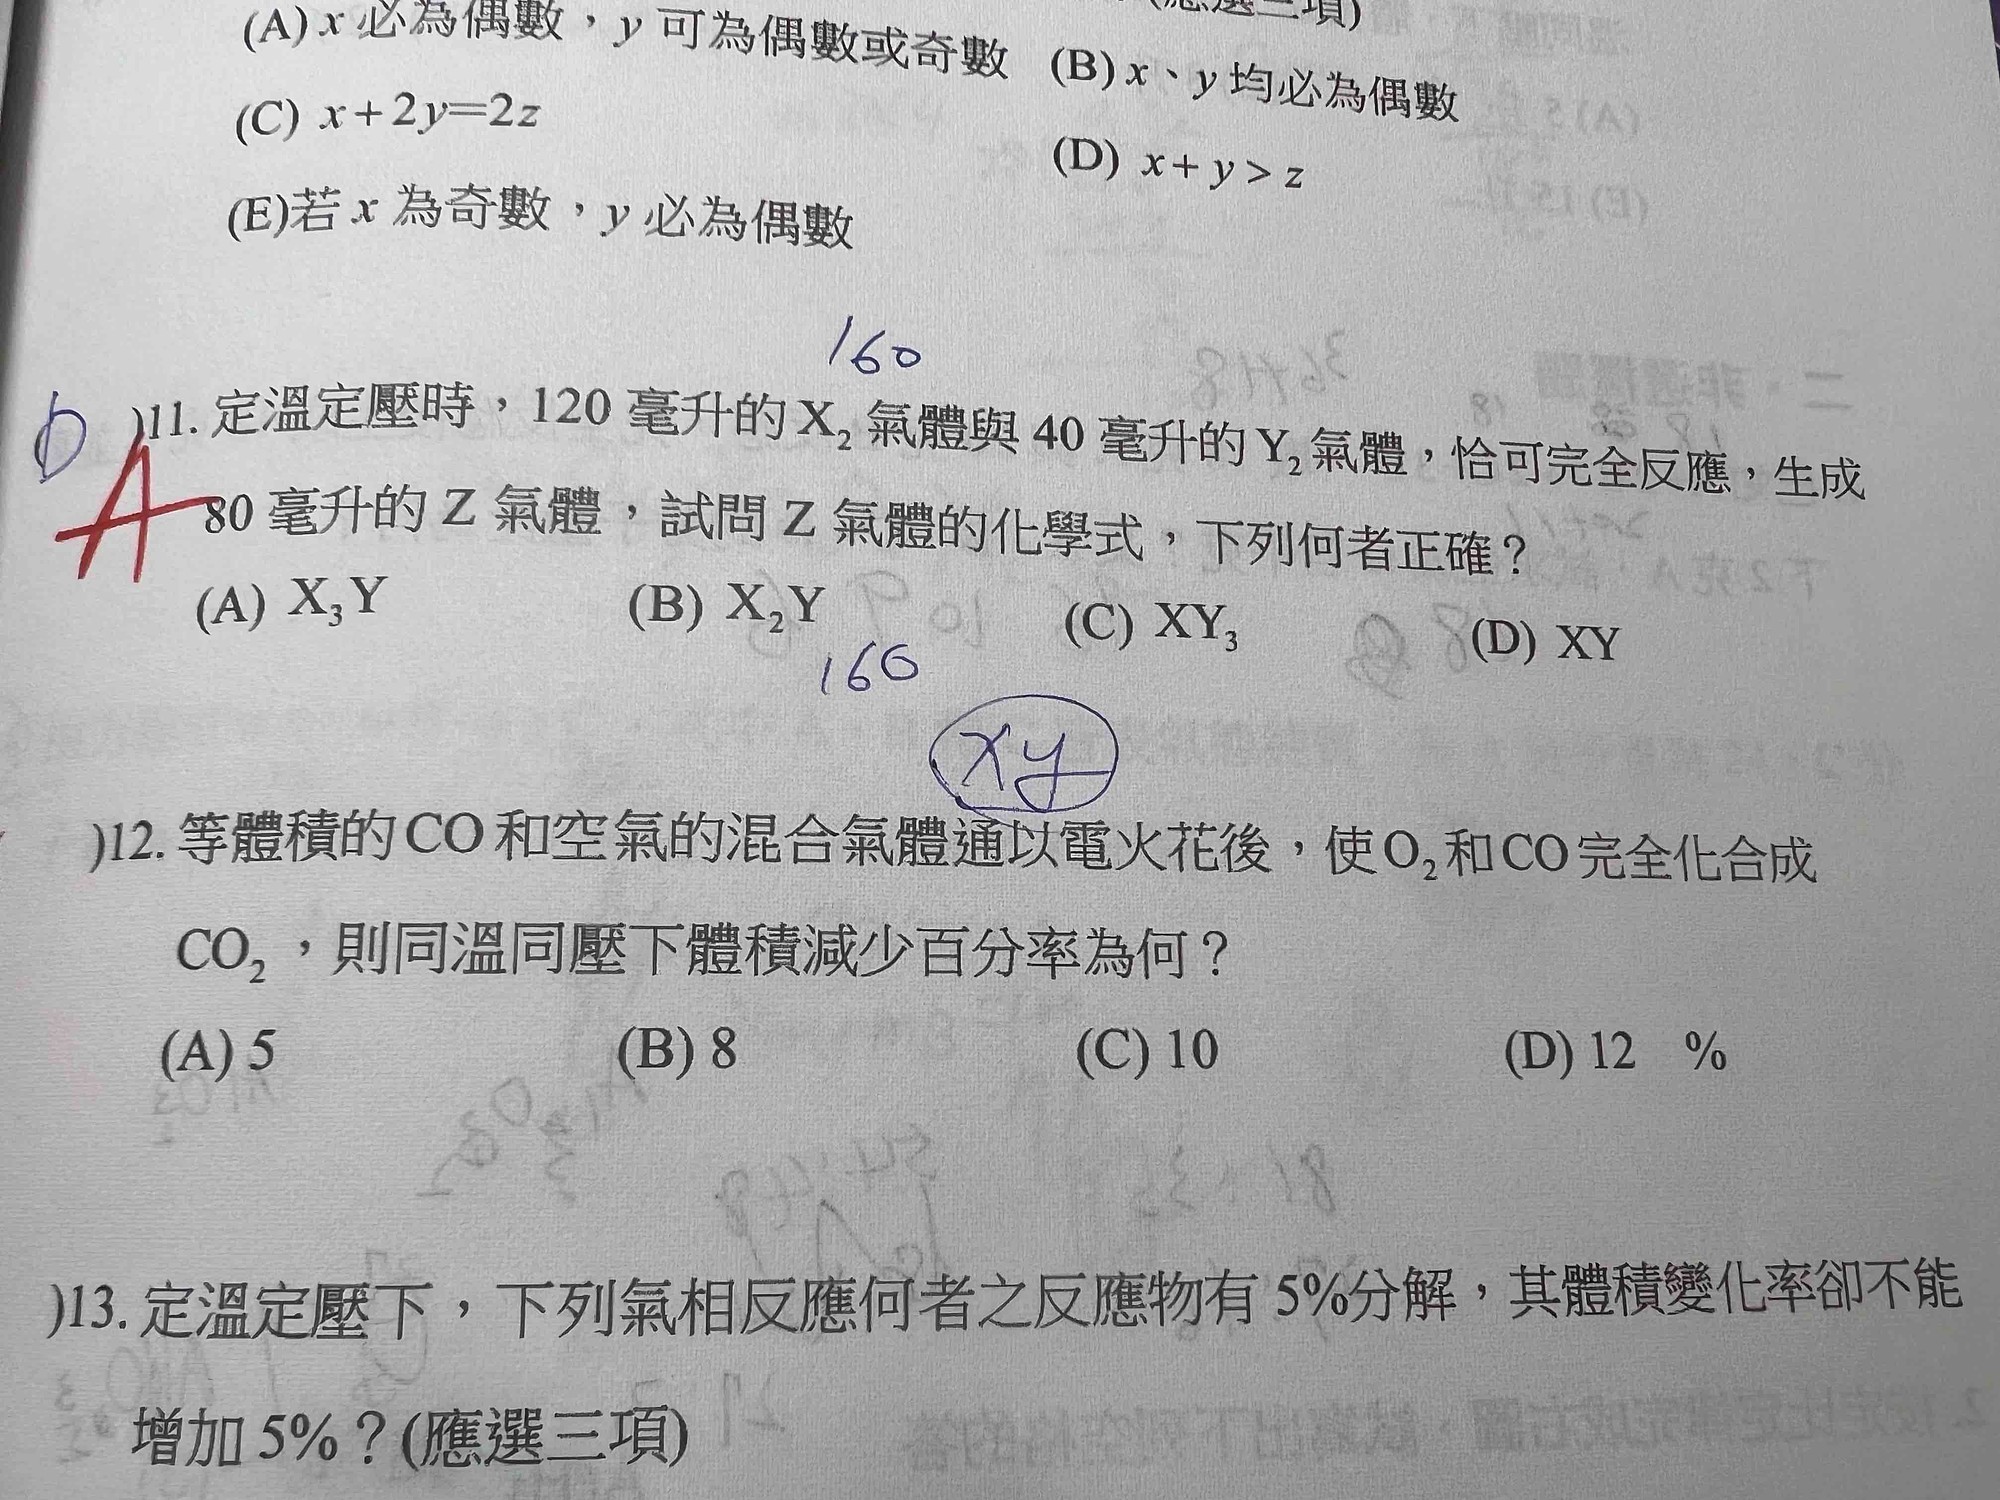 (應選三項)
(A) x 必為偶數，y 可為偶數或奇數 (B) x、y 均必為偶數
(C) x+2y=2z
(D) x+y>z
(E)若 x 為奇數，y 必為偶數
160
D
)11. 定溫定壓時，120 毫升的 X₂ 氣體與 40 毫升的 Y₂ 氣體，恰可完全反應，生成
A
80 毫升的 Z 氣體，試問 Z 氣體的化學式，下列何者正確？
(A) X₃Y (B) X₂Y (C) XY₃ (D) XY
160
xy
)12. 等體積的 CO 和空氣的混合氣體通以電火花後，使 O₂ 和 CO 完全化合成
CO₂，則同溫同壓下體積減少百分率為何？
(A) 5 (B) 8 (C) 10 (D) 12 %
)13. 定溫定壓下，下列氣相反應何者之反應物有 5%分解，其體積變化率卻不能
增加 5%？(應選三項)